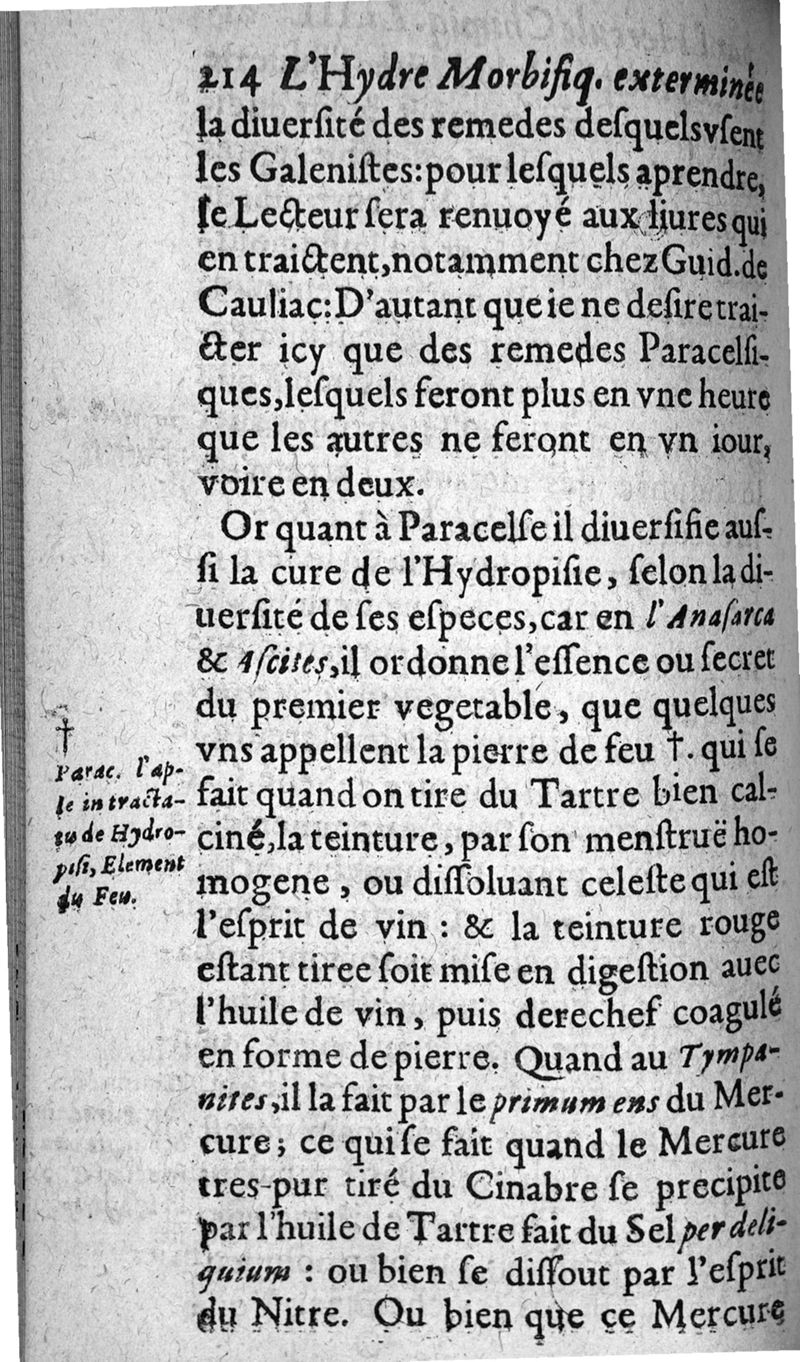 214 L'Hydre Morbifiq. exterminée
la diuerſité des remedes deſquels vſent
les Galeniſtes: pour leſquels aprendre,
le Lecteur ſera renuoyé aux liures qui
en traictent, notamment chez Guid. de
Cauliac: D'autant que ie ne deſire trai-
cter icy que des remedes Paracelſi-
ques, leſquels feront plus en vne heure
que les autres ne feront en vn iour,
voire en deux.
Or quant à Paracelſe il diuerſifie auſ-
ſi la cure de l'Hydropiſie, ſelon la di-
uerſité de ſes eſpeces, car en l'Anaſarca
& Aſcites, il ordonne l'eſſence ou ſecret
du premier vegetable, que quelques
vns appellent la pierre de feu †. qui ſe
fait quand on tire du Tartre bien cal-
ciné, la teinture, par ſon menſtruë ho-
mogene, ou diſſoluant celeſte qui eſt
l'eſprit de vin : & la teinture rouge
eſtant tiree ſoit miſe en digeſtion auec
l'huile de vin, puis derechef coagulé
en forme de pierre. Quand au Tympa-
nites, il la fait par le primum ens du Mer-
cure; ce qui ſe fait quand le Mercure
tres-pur tiré du Cinabre ſe precipite
par l'huile de Tartre fait du Sel per deli-
quium : ou bien ſe diſſout par l'eſprit
du Nitre. Ou bien que ce Mercure
†
Parac. l'ap-
le in tracta-
tu de Hydro-
piſi, Element
du Feu.